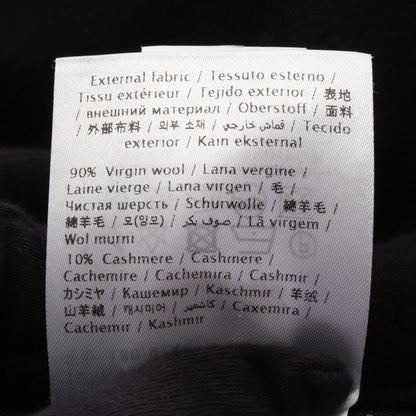 External fabric / Tessuto esterno /
Tissu extérieur / Tejido exterior / 表地
/ внешний материал / Oberstoff / 面料
/ 外部布料 / 외부 소재 / قماش خارجي / Tecido
exterior / Kain eksternal
90% Virgin wool / Lana vergine /
Laine vierge / Lana virgen / 毛 /
Чистая шерсть / Schurwolle / 綿羊毛
/ 绵羊毛 / 모(양모) / صوف بكر / Lã virgem /
Wol murni
10% Cashmere / Cashmere /
Cachemire / Cachemira / Cashmir /
カシミヤ / Кашемир / Kaschmir / 羊绒 /
山羊絨 / 캐시미어 / كاشمير / Caxemira /
Cachemir / Kashmir